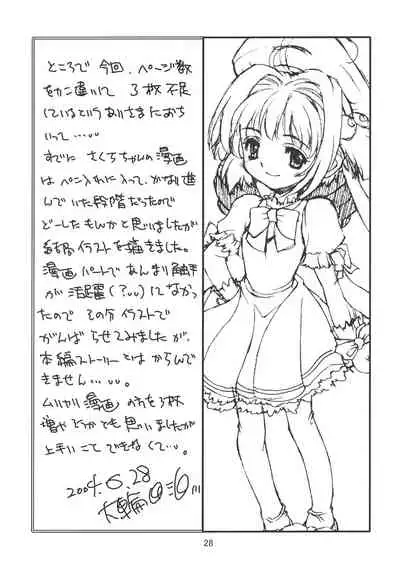 ところで今回、ページ数
をカン違いして3枚不足
しているというありさまにおち
いって……
すでにさくらちゃんの漫画
はペン入れに入って、かなり進
んでいた段階だったので
どーしたもんかと思いましたが
結局イラストを描きました。
漫画パートであんまり触手
が活躍(?)してなかっ
たので その分イラストで
がんばらせてみましたが、
本編ストーリーとはからんで
きません……。
ムリヤリ漫画の方を3枚
増やそうかとも思いましたが
上手いことできなくて…。
2004.6.28
28